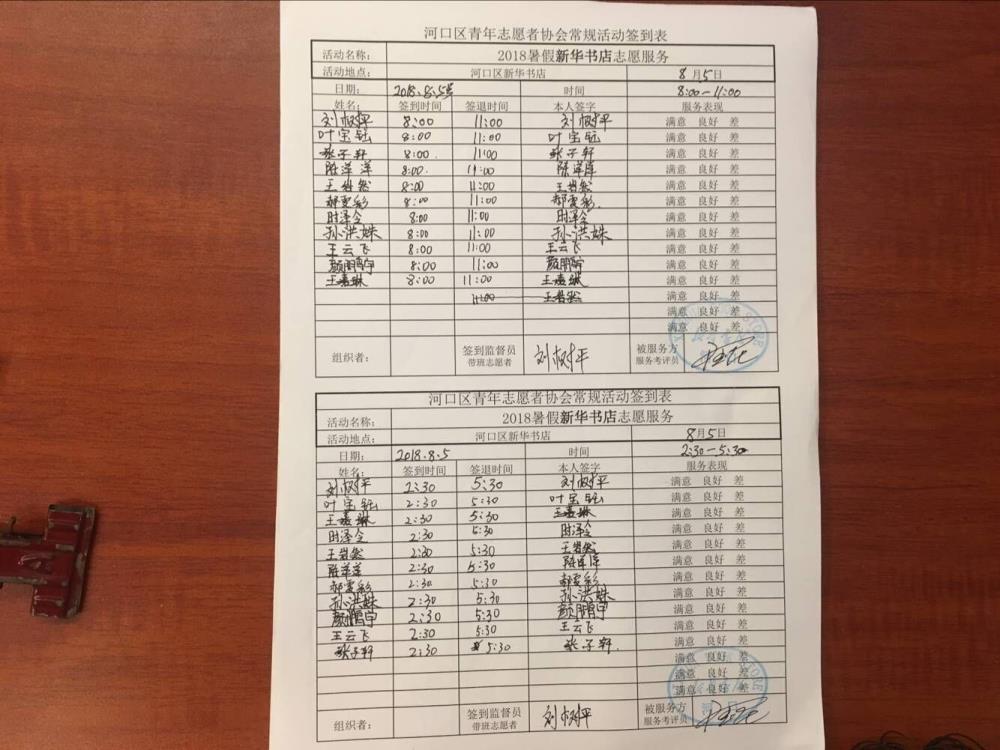 河口区青年志愿者协会常规活动签到表
活动名称： 2018暑假新华书店志愿服务
活动地点： 河口区新华书店 8月5日
日期： 2018.8.5 时间 8:00-11:00
姓名： 签到时间 签退时间 本人签字 服务表现
刘树平 8:00 11:00 刘树平 满意 良好 差
叶宝钰 8:00 11:00 叶宝钰 满意 良好 差
张子轩 8:00 11:00 张子轩 满意 良好 差
陈洋洋 8:00 11:00 陈洋洋 满意 良好 差
王岩然 8:00 11:00 王岩然 满意 良好 差
郝雯彩 8:00 11:00 郝雯彩 满意 良好 差
时泽令 8:00 11:00 时泽令 满意 良好 差
孙洪姝 8:00 11:00 孙洪姝 满意 良好 差
王云飞 8:00 11:00 王云飞 满意 良好 差
颜鹏宇 8:00 11:00 颜鹏宇 满意 良好 差
王嘉琳 8:00 11:00 王嘉琳 满意 良好 差
11:00 王岩然 满意 良好 差
满意 良好 差
满意 良好 差
组织者： 签到监督员 带班志愿者 刘树平 被服务方 服务考评员
河口区青年志愿者协会常规活动签到表
活动名称： 2018暑假新华书店志愿服务
活动地点： 河口区新华书店 8月5日
日期： 2018.8.5 时间 2:30-5:30
姓名： 签到时间 签退时间 本人签字 服务表现
刘树平 2:30 5:30 刘树平 满意 良好 差
叶宝钰 2:30 5:30 叶宝钰 满意 良好 差
王嘉琳 2:30 5:30 王嘉琳 满意 良好 差
时泽令 2:30 5:30 时泽令 满意 良好 差
王岩然 2:30 5:30 王岩然 满意 良好 差
陈洋洋 2:30 5:30 陈洋洋 满意 良好 差
郝雯彩 2:30 5:30 郝雯彩 满意 良好 差
孙洪姝 2:30 5:30 孙洪姝 满意 良好 差
颜鹏宇 2:30 5:30 颜鹏宇 满意 良好 差
王云飞 2:30 5:30 王云飞 满意 良好 差
张子轩 2:30 5:30 张子轩 满意 良好 差
满意 良好 差
满意 良好 差
满意 良好 差
组织者： 签到监督员 带班志愿者 刘树平 被服务方 服务考评员